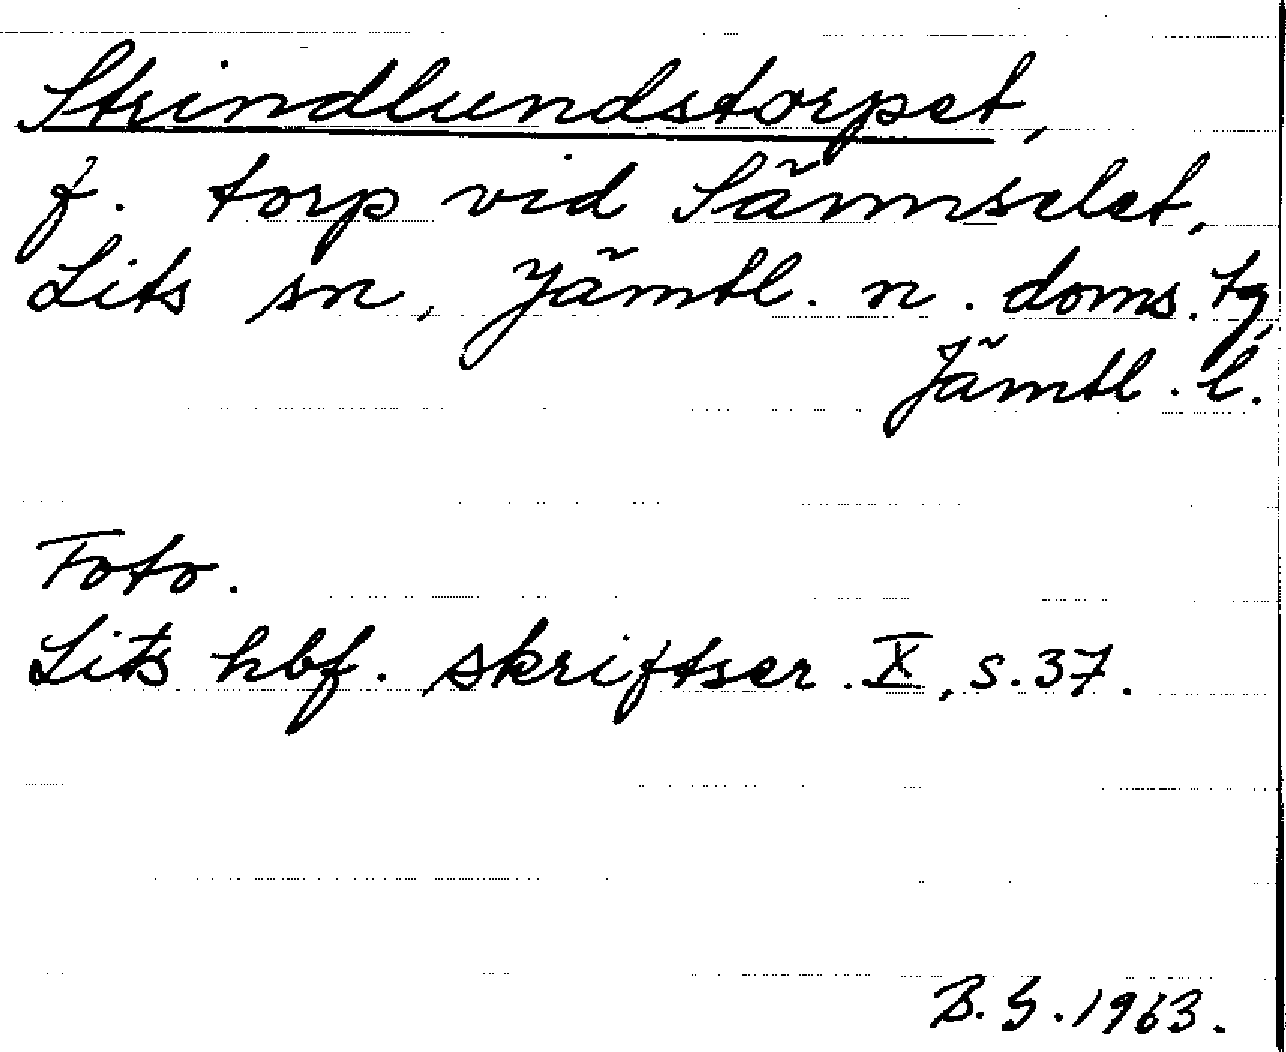 Strindlundstorpet,
f. torp vid Sämselet,
Lits sn, Jämtl. n. doms. tg,
Jämtl. l.
Foto.
Lits hbf. skriftser. X, s. 37.
B. G. 1963.